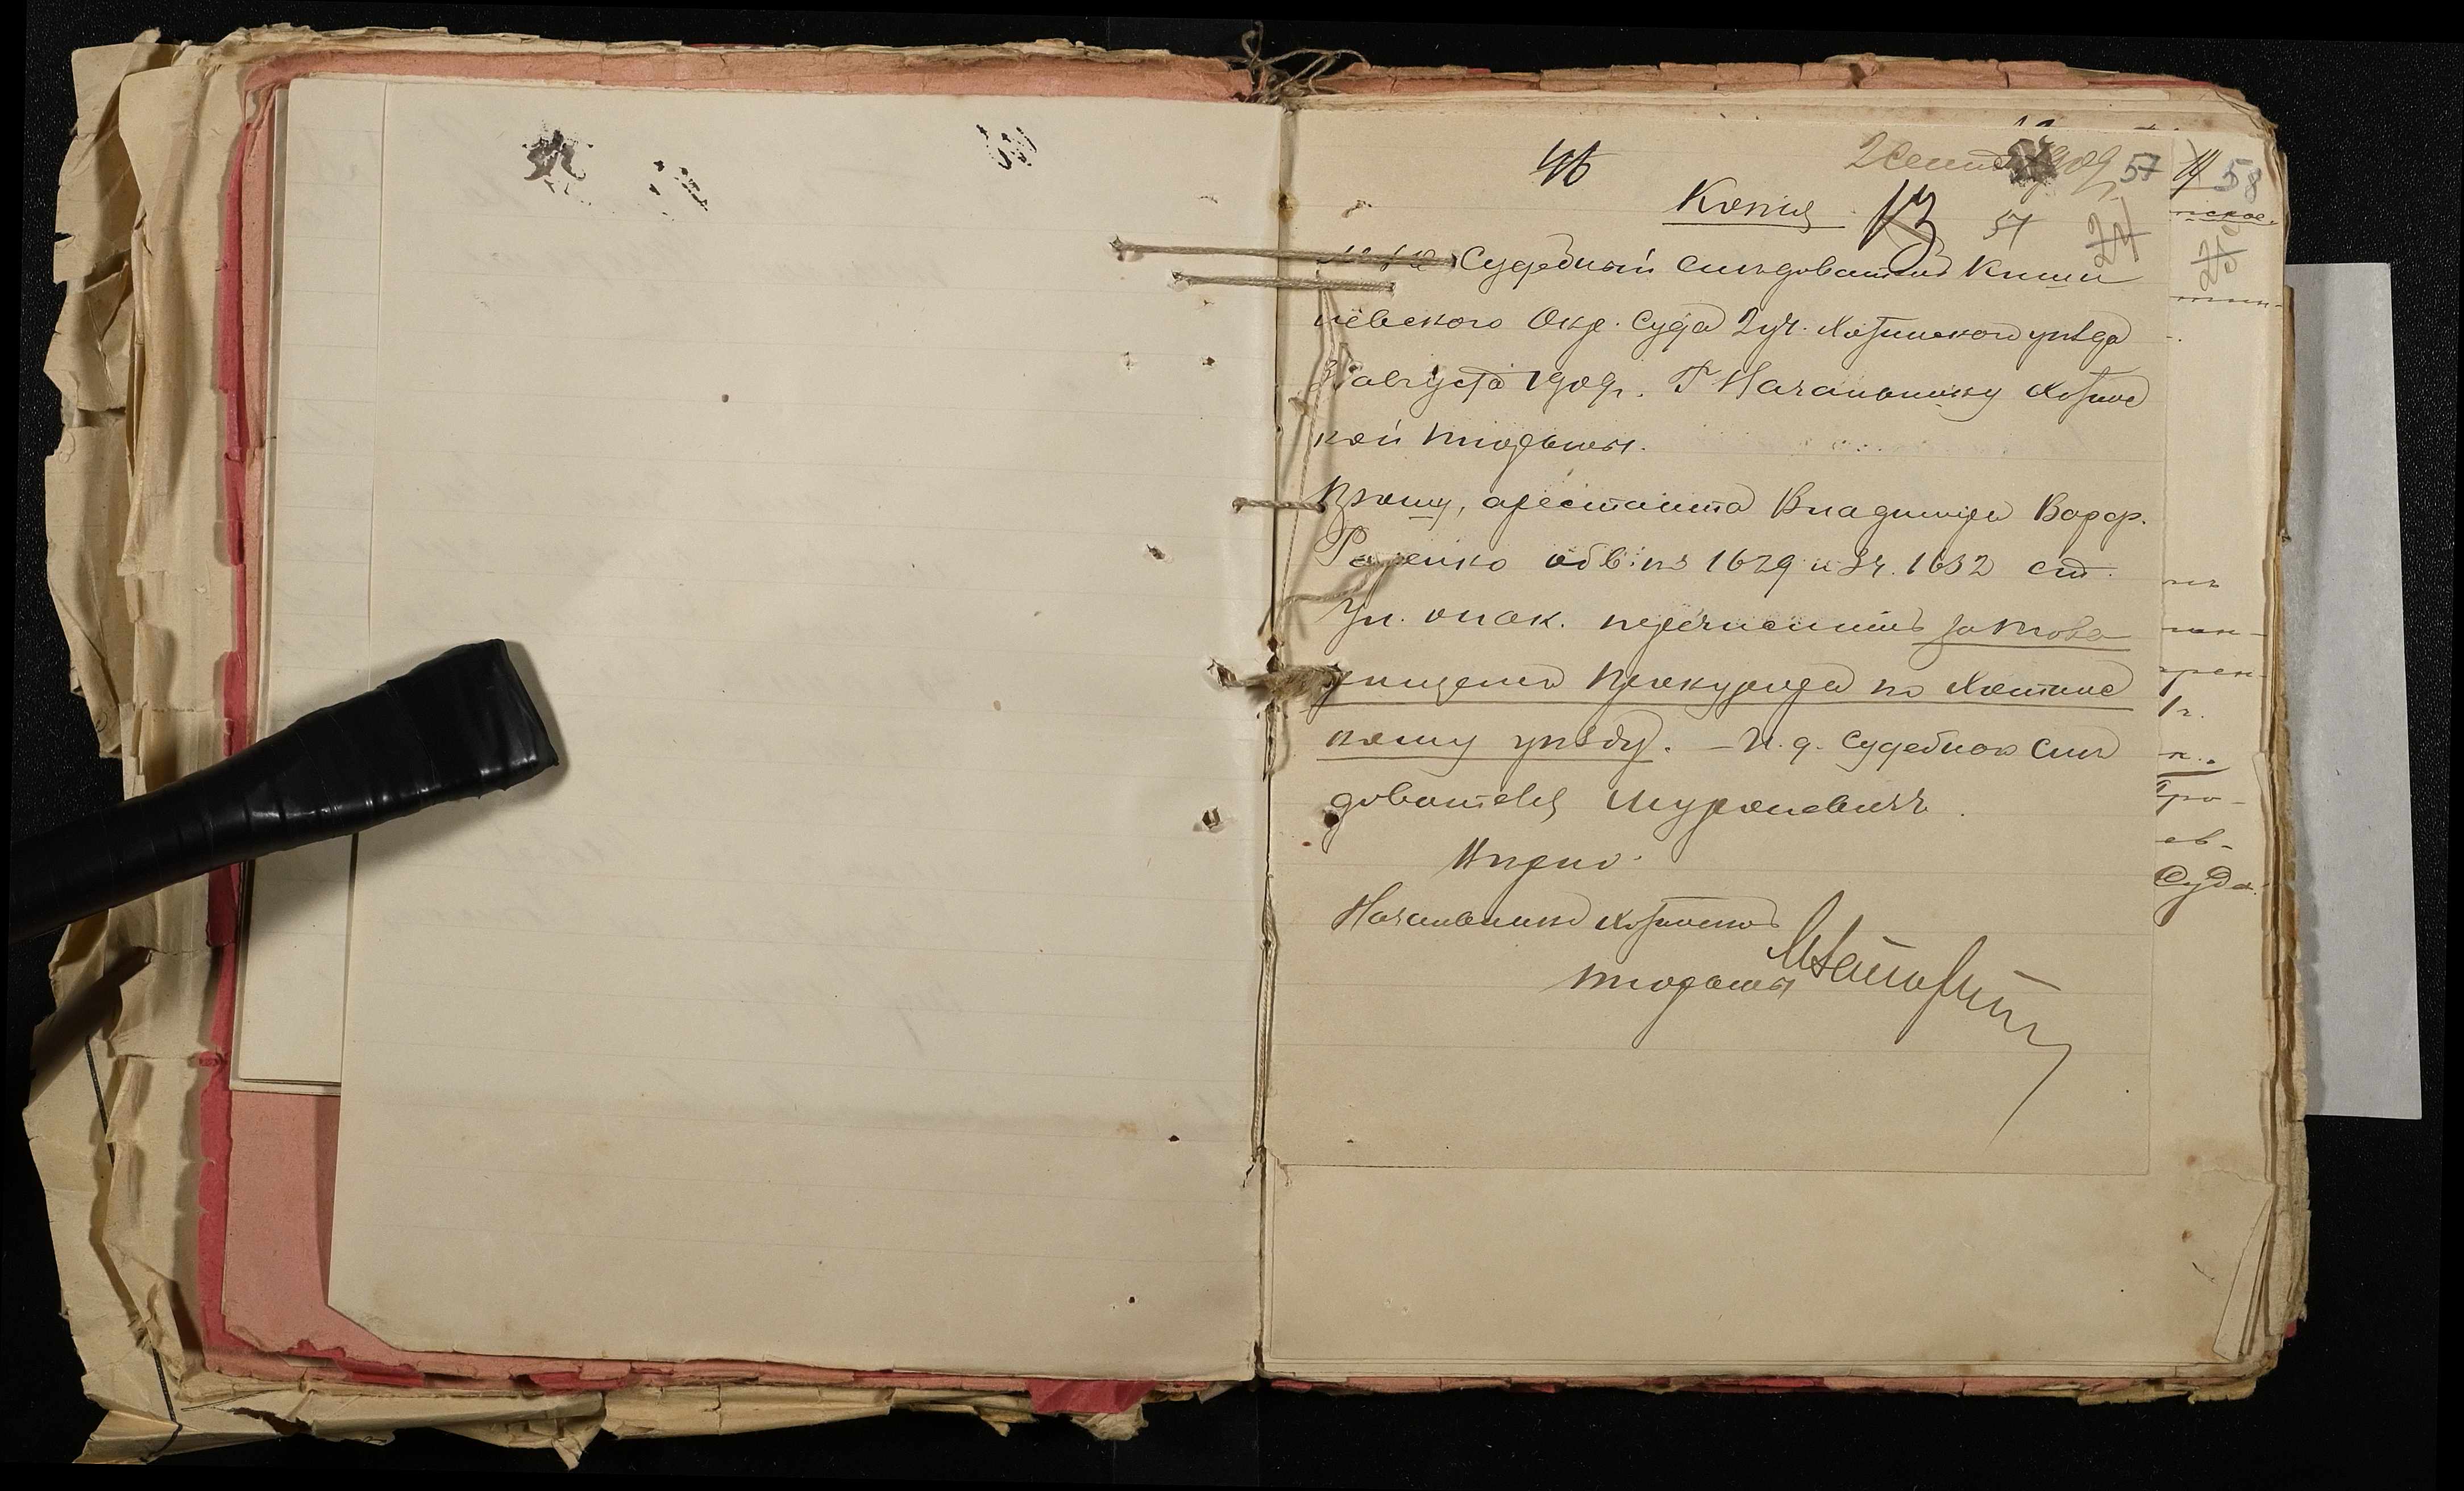 46
2 Сент 1909 г. 57
Копия 13 57 24
Судебный Следователь Киши
невского Окр. Суда 2 уч. Хотинского уѣзда
августа 1909 г. Г. Начальнику Хотинс
кой тюрьмы.
Прошу, арестанта Владимира Варф.
обв. по 1629 и 3 ч. 1632 ст.
Ул. о нак. перечислить за Това
рищемъ Прокурора по Хотинс
кому уѣзду. – И. д. Судебнаго Слѣ
дователя
Вѣрно:
Начальникъ Хотинской
тюрьмы
58
25
1 ч.
Суда.